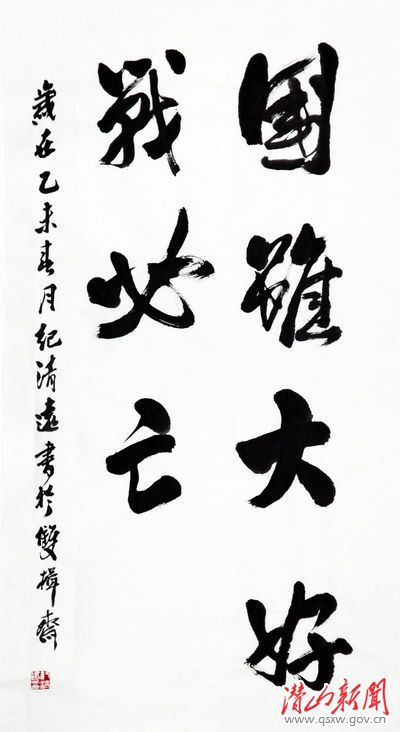 國雖大好
戰必亡
歲在乙未春月纪清遠書於雙揖齋
潜山新闻
www.qsxw.gov.cn